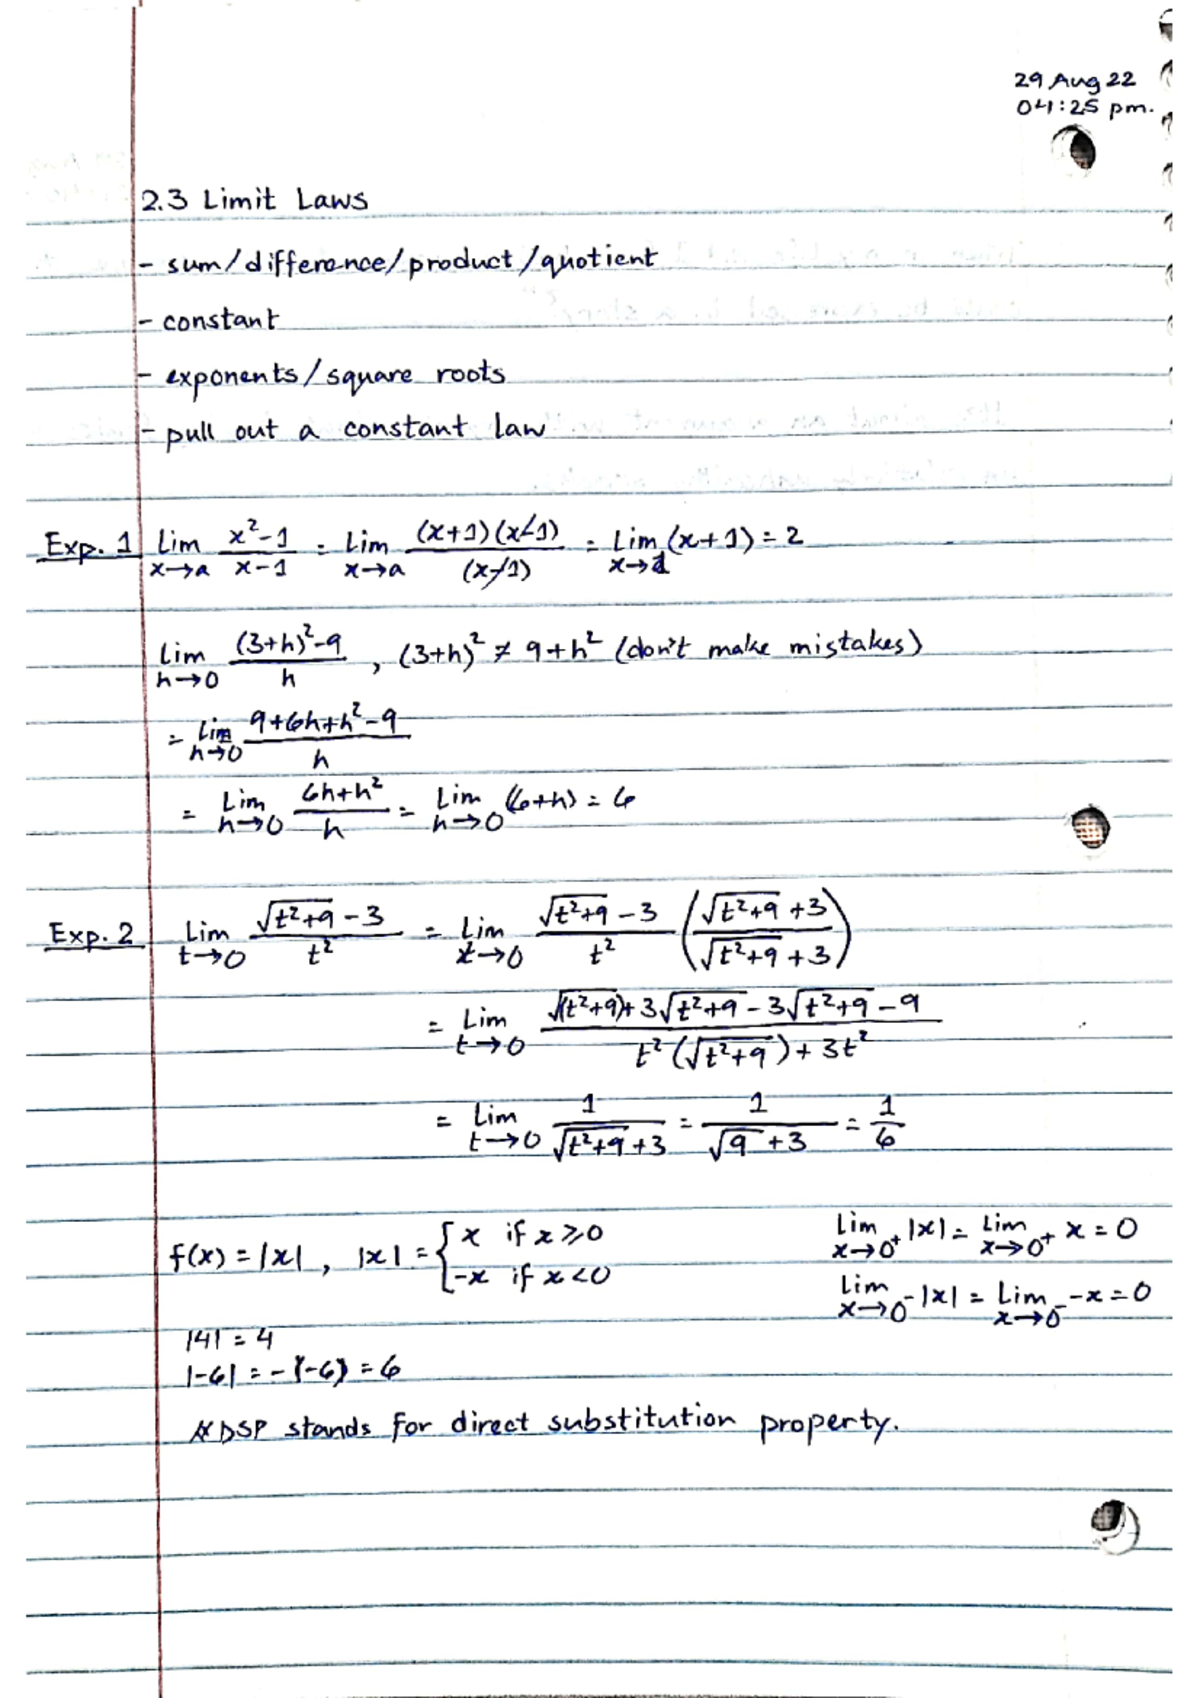 29 Aug 22
04:25 pm.
2.3 Limit Laws
- sum/difference/product/quotient
- constant
- exponents/square roots
- pull out a constant law
Exp. 1 Lim x→a (x²-1)/(x-1) = Lim x→a (x+1)(x-1)/(x-1) = Lim x→1 (x+1) = 2
Lim h→0 ((3+h)²-9)/h , (3+h)² ≠ 9+h² (don't make mistakes)
= Lim h→0 (9+6h+h²-9)/h
= Lim h→0 (6h+h²)/h = Lim h→0 (6+h) = 6
Exp. 2 Lim t→0 (√(t²+9) - 3)/t² = Lim t→0 (√(t²+9) - 3)/t² ((√(t²+9) + 3)/(√(t²+9) + 3))
= Lim t→0 ((t²+9) + 3√(t²+9) - 3√(t²+9) - 9)/(t²(√(t²+9)) + 3t²)
= Lim t→0 1/(√(t²+9) + 3) = 1/(√9 + 3) = 1/6
f(x) = |x| , |x| = { x if x ≥ 0
-x if x < 0
Lim x→0⁺ |x| = Lim x→0⁺ x = 0
Lim x→0⁻ |x| = Lim x→0⁻ -x = 0
|4| = 4
|-6| = -(-6) = 6
* DSP stands for direct substitution property.